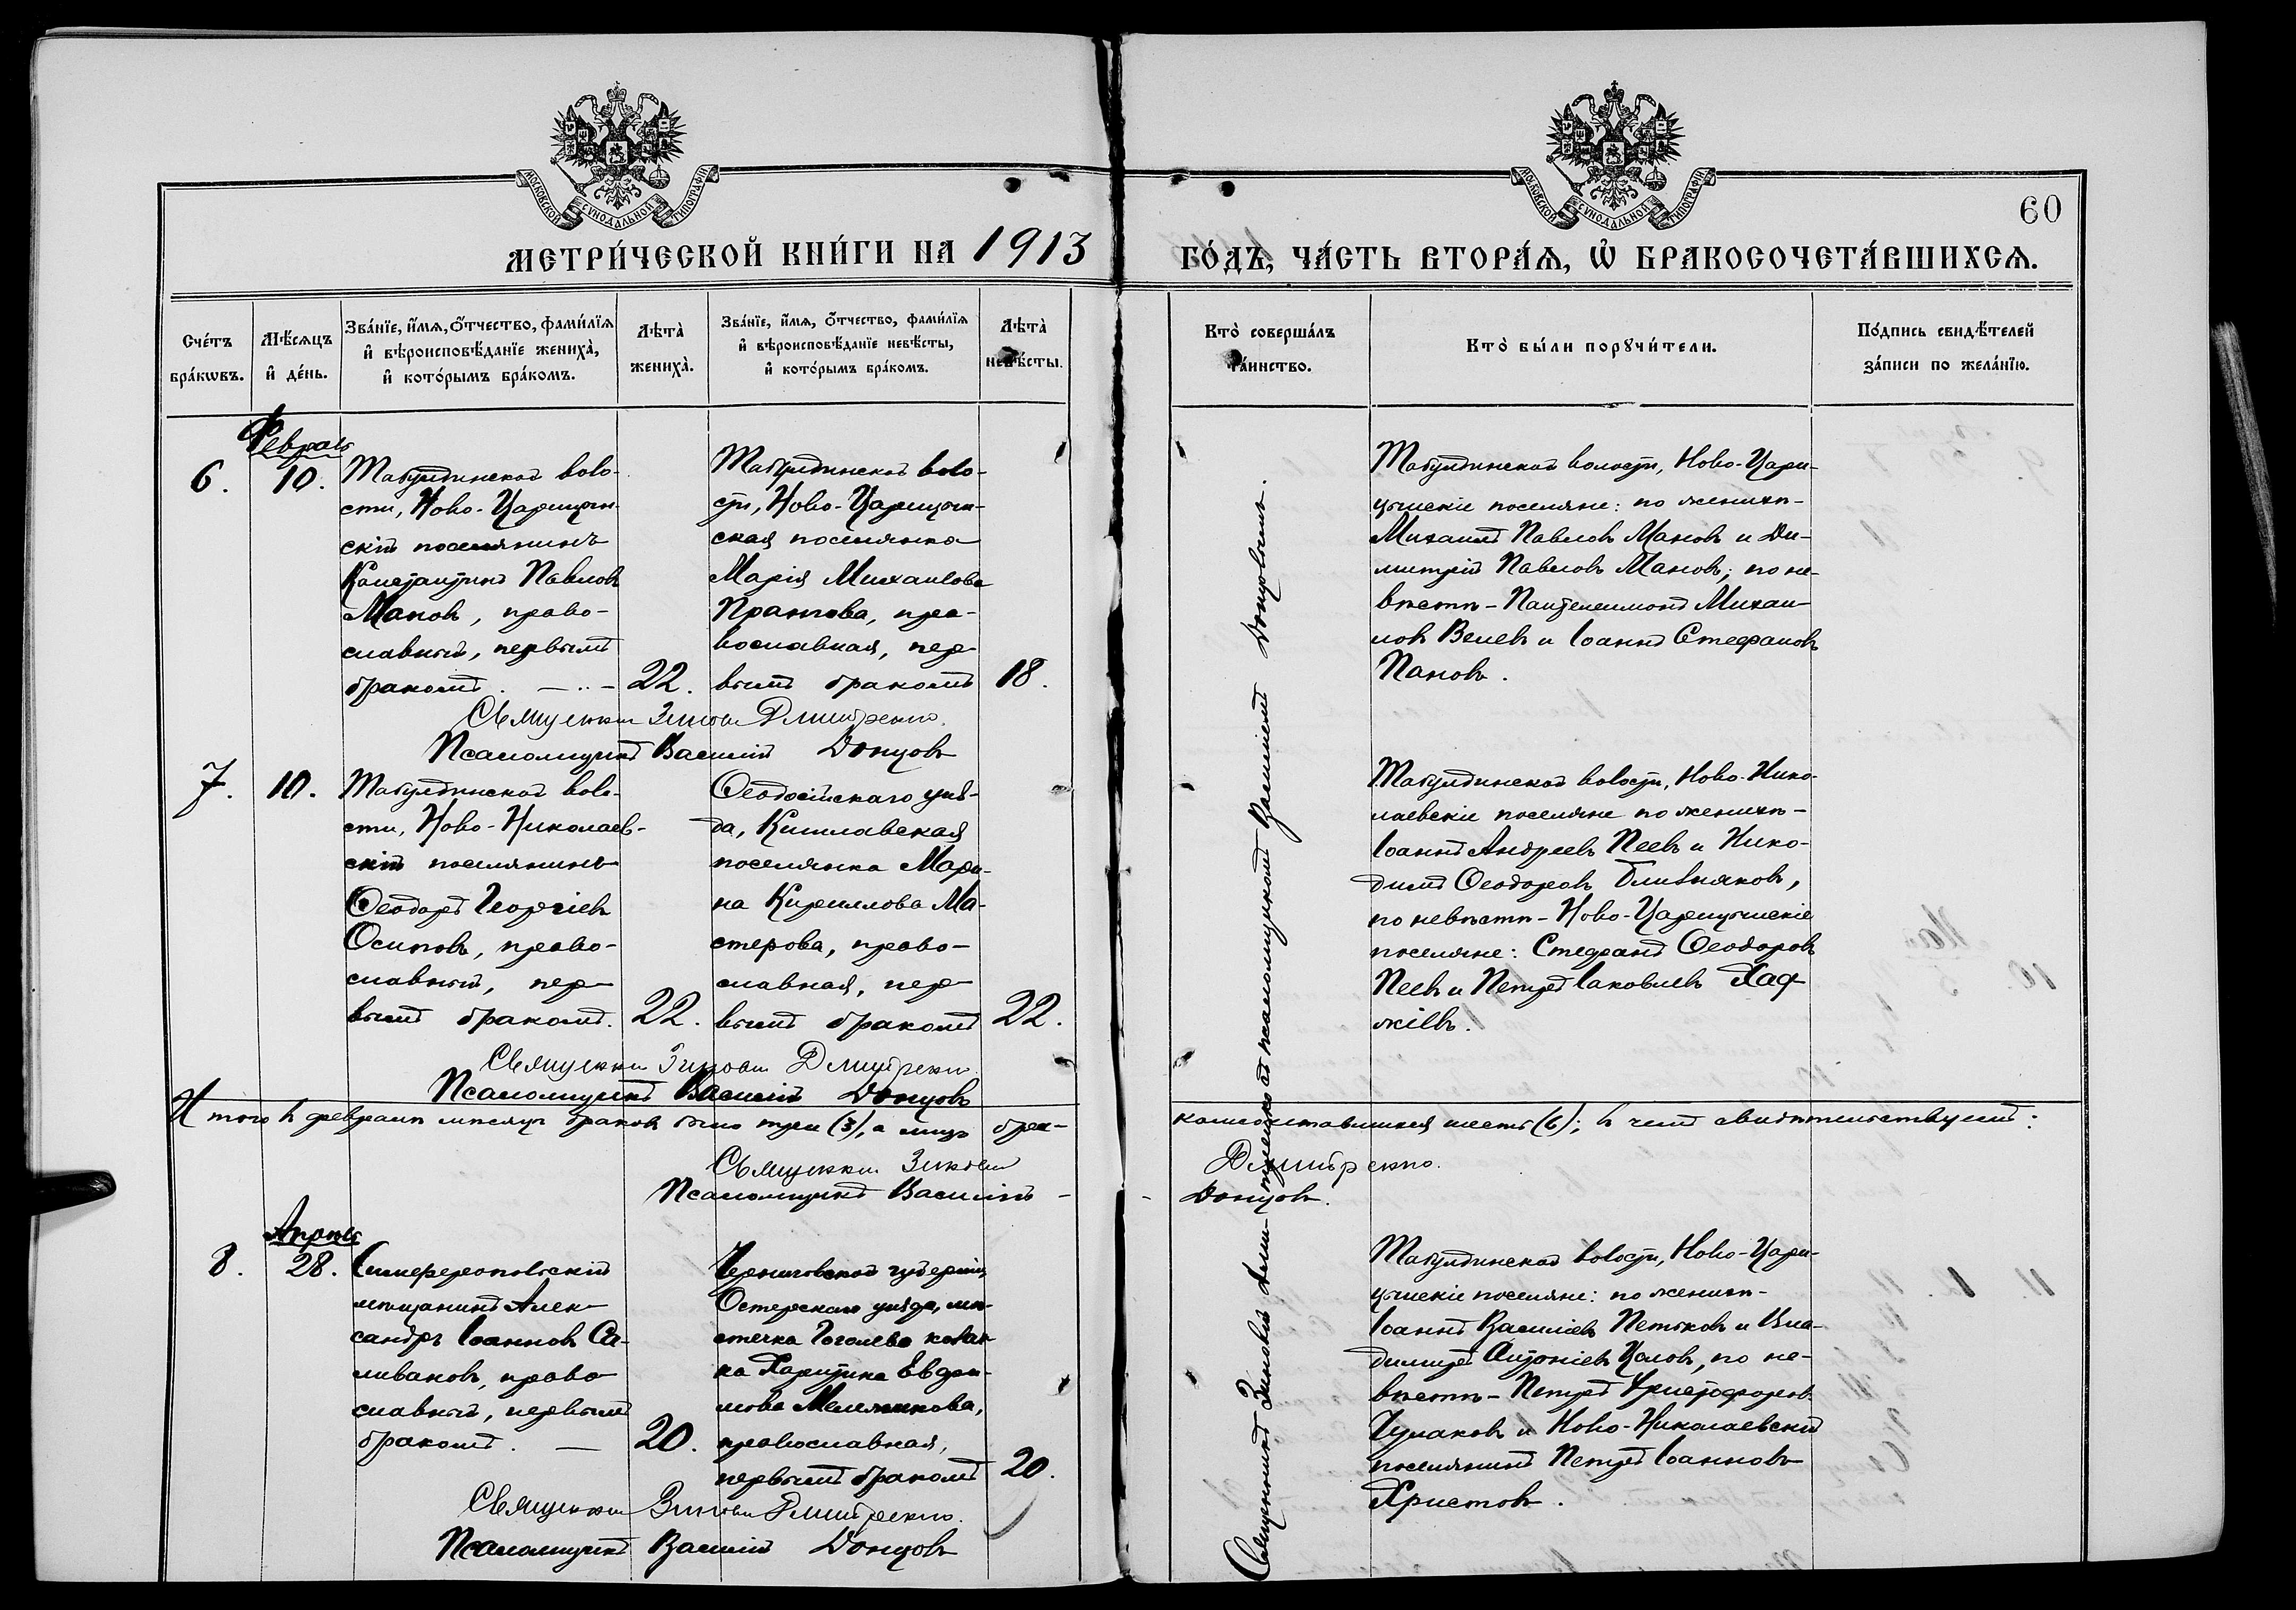 МОСКОВСКОЙ СѴНОДАЛЬНОЙ ТИПОГРАФІИ
МОСКОВСКОЙ СѴНОДАЛЬНОЙ ТИПОГРАФІИ
60
МЕТРИ́ЧЕСКОЙ КНИ́ГИ НА 1913 ГО́ДЪ, ЧА́СТЬ ВТОРА́Ѧ, Ѡ҆ БРАКОСОЧЕТА́ВШИХСѦ.
Сче́тъ
бра́кѡвъ.
Мѣ́сѧцъ
и҆ де́нь.
Зва́нїе, и҆́мѧ, ѻ҆́тчество, фами́лїѧ
и҆ вѣроисповѣ́данїе жениха̀,
и҆ кото́рымъ бра́комъ.
Лѣта̀
жениха̀.
Зва́нїе, и҆́мѧ, ѻ҆́тчество, фами́лїѧ
и҆ вѣроисповѣ́данїе невѣ́сты,
и҆ кото́рымъ бра́комъ.
Лѣта̀
невѣ́сты.
Кто̀ соверша́лъ
та́инство.
Кто̀ бы́ли порꙋчи́тели.
По́дпись свидѣ́телей
за́писи по жела́нїю.
Февраль
6.
10.
Табулдинской воло-
сти, Ново-Царицын-
скій поселянинъ
Константинъ Павловъ
Мановъ, право-
славный, первымъ
бракомъ. — .. —
22.
Табулдинской воло-
сти, Ново-Царицын-
ская поселянка
Марія Михаилова
Прангова, пра-
вославная, пер-
вымъ бракомъ
18.
Табулдинской волости, Ново-Цари-
цынскіе поселяне: по женихѣ-
Михаилъ Павловъ Мановъ и Ди-
митрій Павловъ Мановъ; по не-
вѣстѣ - Пантелеимонъ Михаи-
ловъ Велевъ и Іоаннъ Стефановъ
Пановъ.
Священникъ Зиновій Дмитренко.
Псаломщикъ Василій Донцовъ
7.
10.
Табулдинской воло-
сти, Ново-Николаев-
скій поселянинъ
Ѳеодоръ Георгіевъ
Осиповъ, право-
славный, пер-
вымъ бракомъ.
22.
Ѳеодосійскаго уѣз-
да, Кишлавская
поселянка Мари-
на Кириллова Ма-
стерова, право-
славная, пер-
вымъ бракомъ
22.
Табулдинской волости, Ново-Нико-
лаевскіе поселяне по женихѣ -
Іоаннъ Андреевъ Пеевъ и Нико-
димъ Ѳеодоровъ Близняковъ,
по невѣстѣ - Ново-Царицынскіе
поселяне: Стефанъ Ѳеодоровъ
Пеевъ и Петръ Іаковлевъ Хад-
жіевъ.
Священникъ Зиновій Дмитренко.
Псаломщикъ Василій Донцовъ
Итого въ февралѣ мѣсяцѣ браковъ было три (3), а лицъ бра-
косочетавшихся шесть (6); въ чемъ свидѣтельствуемъ:
Священникъ Зиновій Дмитренко.
Псаломщикъ Василій - Донцовъ.
Апрѣль
8.
28.
Симферопольскій
мѣщанинъ Алек-
сандръ Іоанновъ Се-
ливановъ, право-
славный, первымъ
бракомъ. —
20.
Черниговской губерніи,
Остерскаго уѣзда, мѣ-
стечка Гоголева козач-
ка Харитина Евфи-
мова Мельникова,
православная,
первымъ бракомъ
20.
Табулдинской волости, Ново-Цари-
цынскіе поселяне: по женихѣ-
Іоаннъ Василіевъ Петковъ и Вла-
димиръ Антоніевъ Цоловъ, по не-
вѣстѣ - Петръ Христофоровъ
Чумаковъ и Ново-Николаевскій
поселянинъ Петръ Іоанновъ
Христовъ.
Священникъ Зиновій Дмитренко.
Псаломщикъ Василій Донцовъ
Священникъ Зиновій Дми-
тренко съ псаломщикомъ Василіемъ Донцовымъ.